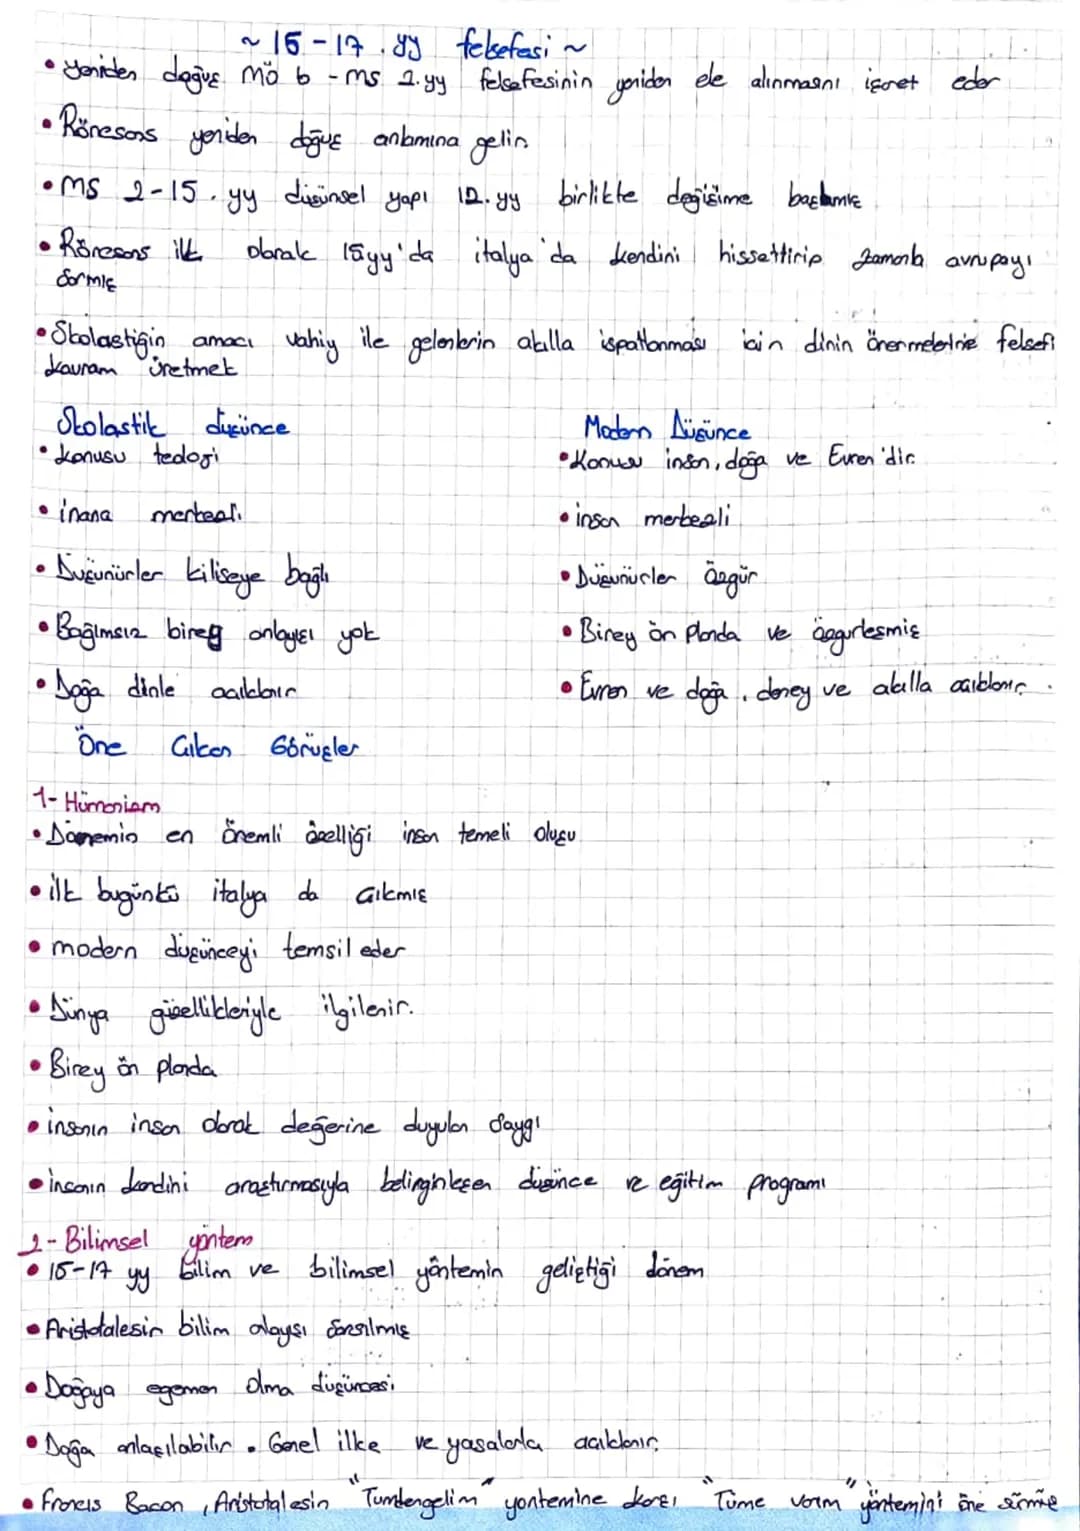 ~ 15-17. yy felsefesi ~
• Yeniden doğuş MÖ 6 - MS 2.yy felsefesinin yeniden ele alınmasını işaret eder
• Rönesans yeniden doğuş anlamına gelir.
• MS 2-15. yy düşünsel yapı 12. yy birlikte değişime başlamış
• Rönesans ilk olarak 15yy'da italya'da kendini hissettirip zamanla avrupayı
sarmış
• Skolastiğin amacı vahiy ile gelenlerin akılla ispatlanması için dinin önermelerine felsefi
kavram üretmek
Skolastik düşünce
• konusu teoloji
• inanç merkezli
• Düşünürler kiliseye bağlı
• Bağımsız birey anlayışı yok
• Doğa dinle açıklanır
Modern Düşünce
• Konusu insan, doğa ve Evren'dir.
• insan merkezli
• Düşünürler özgür
• Birey ön planda ve özgürleşmiş
• Evren ve doğa, deney ve akılla açıklanır.
Öne Çıkan Görüşler
1- Hümanizm
• Dönemin en önemli özelliği insan temeli oluşu
• ilk bugünkü italya da çıkmış
• modern düşünceyi temsil eder
• Dünya güzellikleriyle ilgilenir.
• Birey ön planda
• insanın insan olarak değerine duyulan saygı
• insanın kendini araştırmasıyla belirginleşen düşünce ve eğitim programı
2- Bilimsel yöntem
• 15-17 yy bilim ve bilimsel yöntemin geliştiği dönem
• Aristotalesin bilim alayışı sarsılmış
• Doğaya egemen olma düşüncesi
• Doğa anlaşılabilir. Genel ilke ve yasalarla açıklanır.
• Francis Bacon, Aristotalesin "Tümdengelim" yöntemine karşı "Tüme varım" yöntemini öne sürmüş